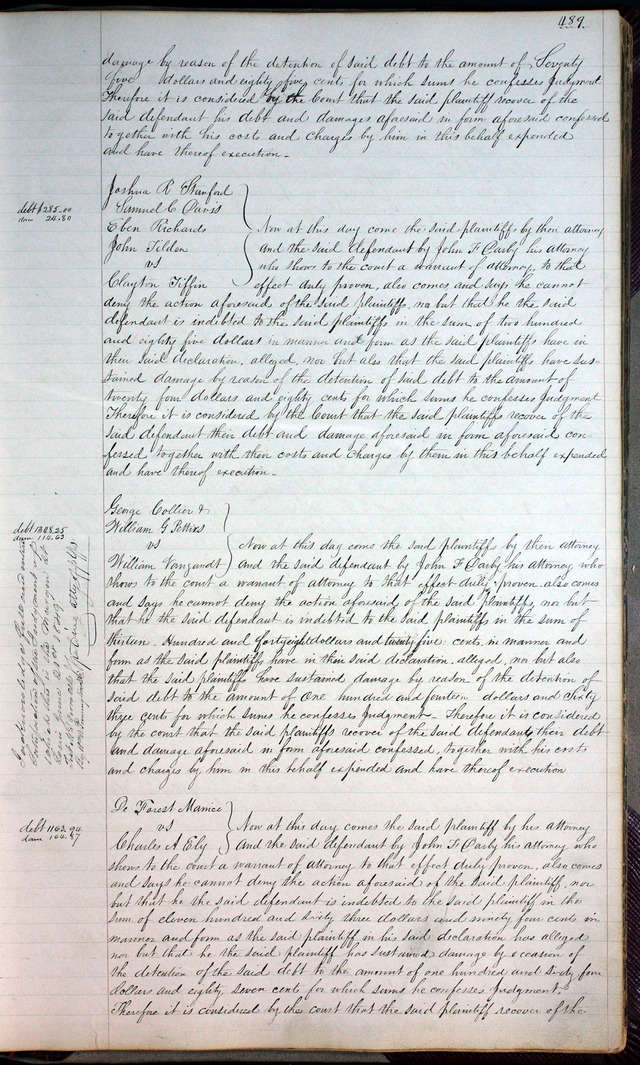 489
damage by reason of the detention of said debt to the amount of Seventy
five dollars and eighty five cents for which sums he confesses Judgment
Therefore it is considered by the Court that the said plaintiff recover of the
said defendant his debt and damages aforesaid in form aforesaid confessed
together with his costs and Charges by him in this behalf expended
and have thereof execution.
debt $285.00
dam 24.80
Joshua R Stanford
Samuel C Davis
Eben Richards
John Tilden
vs
Clayton Tiffin
Now at this day come the said plaintiffs by their attorney
and the said defendant by John F Darby his attorney
who shows to the court a warrant of attorney to that
effect duly proven, also comes and says he cannot
deny the action aforesaid of the said plaintiffs, nor but that he the said
defendant is indebted to the said plaintiffs in the sum of two hundred
and eighty five dollars in manner and form as the said plaintiffs have in
their said declaration, alleged, nor but also that the said plaintiffs have sus-
tained damage by reason of the detention of said debt to the amount of
twenty four dollars and eighty cents for which sums he confesses Judgment
Therefore it is considered by the Court that the said plaintiffs recover of the
said defendant their debt and damage aforesaid in form aforesaid con-
fessed together with their costs and Charges by them in this behalf expended
and have thereof execution.
debt 1348.25
dam 114.63
George Collier &
William G Pettus
vs
William Vangandt
Now at this day come the said plaintiffs by their attorney
and the said defendant by John F Darby his attorney who
shows to the court a warrant of attorney to that effect duly proven also comes
and says he cannot deny the action aforesaid of the said plaintiffs, nor but
that he the said defendant is indebted to the said plaintiffs in the sum of
thirteen Hundred and forty eight dollars and twenty five cents, in manner and
form as the said plaintiffs have in their said declaration, alleged, nor but also
that the said plaintiffs have sustained damage by reason of the detention of
said debt to the amount of One hundred and fourteen dollars and Sixty
three cents for which sums he confesses Judgment. Therefore it is considered
by the court that the said plaintiffs recover of the said defendant their debt
and damage aforesaid in form aforesaid confessed, together with his costs
and charges by him in this behalf expended and have thereof execution
debt 1163.94
dam 164.87
De Forest Manice
vs
Charles A Ely
Now at this day comes the said plaintiff by his attorney
and the said defendant by John F Darby his attorney who
shows to the court a warrant of attorney to that effect duly proven, also comes
and says he cannot deny the action aforesaid of the said plaintiff, nor
but that he the said defendant is indebted to the said plaintiff in the
sum of eleven hundred and sixty three dollars and ninety four cents in
manner and form as the said plaintiff in his said declaration has alleged
nor but that he the said plaintiff has sustained damage by occasion of
the detention of the said debt to the amount of one hundred and sixty four
dollars and eighty seven cents for which sums he confesses Judgment.
Therefore it is considered by the court that the said plaintiff recover of the